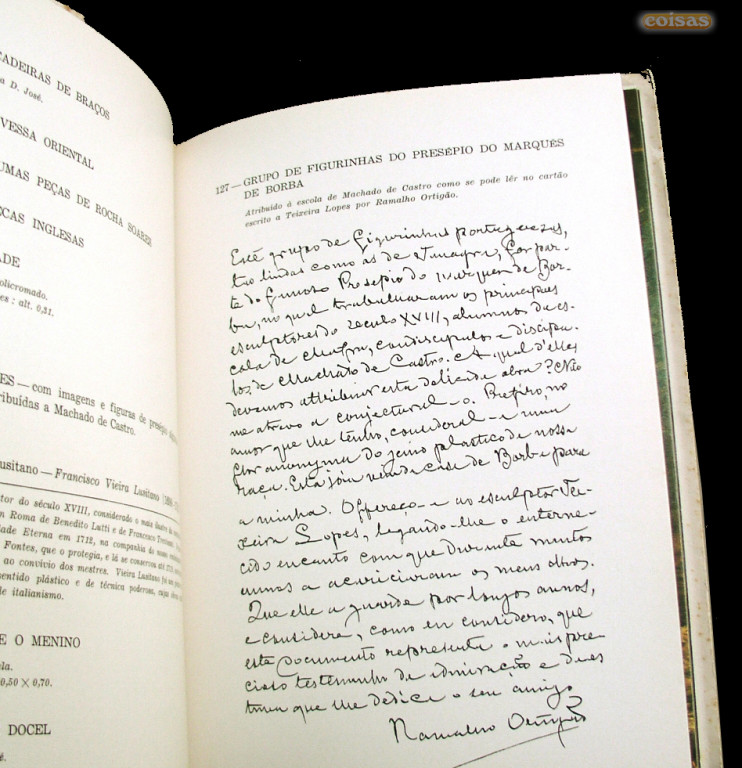 coisas
CADEIRAS DE BRAÇOS
a D. José.
VESSA ORIENTAL
UMAS PEÇAS DE ROCHA SOARES
ECAS INGLESAS
ADE
olicromado.
es : alt. 0,31.
ES — com imagens e figuras de presépio
ribuídas a Machado de Castro.
Lusitano — Francisco Vieira Lusitano
tor do século XVIII, considerado o mais
m Roma de Benedito Lutti e de Francisco
dade Eterna em 1712, na companhia do
Fontes, que o protegia, e lá se conservou até
ao convívio dos mestres. Vieira Lusitano foi
sentido plástico e de técnica poderosa,
de italianismo.
E O MENINO
ela.
0,50 × 0,70.
DOCEL
é.
127 — GRUPO DE FIGURINHAS DO PRESÉPIO DO MARQUÊS
DE BORBA
Atribuído à escola de Machado de Castro como se pode lêr no cartão
escrito a Teixeira Lopes por Ramalho Ortigão.
Este grupo de figurinhas portuguezas,
tão lindas como as de Tanagra, faz par-
te do famoso Presepio do Marquez de Bor-
ba, no qual trabalharam os principaes
esculptores do seculo XVIII, alumnos da es-
cola de Mafra, condiscipulos e discipu-
los de Machado de Castro. A qual d'elles
devemos attribuir esta delicada obra? Não
me atrevo a conjectural-o. Prefiro, no
amor que lhe tenho, consideral-a uma
flor anonyma do jenio plastico de nossa
raça. Esta joia veio da casa de Borba para
a minha. Offereço-a ao esculptor Tei-
xeira Lopes, legando-lhe o enterne-
cido encanto com que durante muitos
annos a acariciaram os meus olhos.
Que elle a guarde por longos annos,
e considere, como eu considero, que
este documento representa o mais pre-
cioso testemunho de admiração e d'es
tima que lhe dedica o seu amigo
Ramalho Ortigão